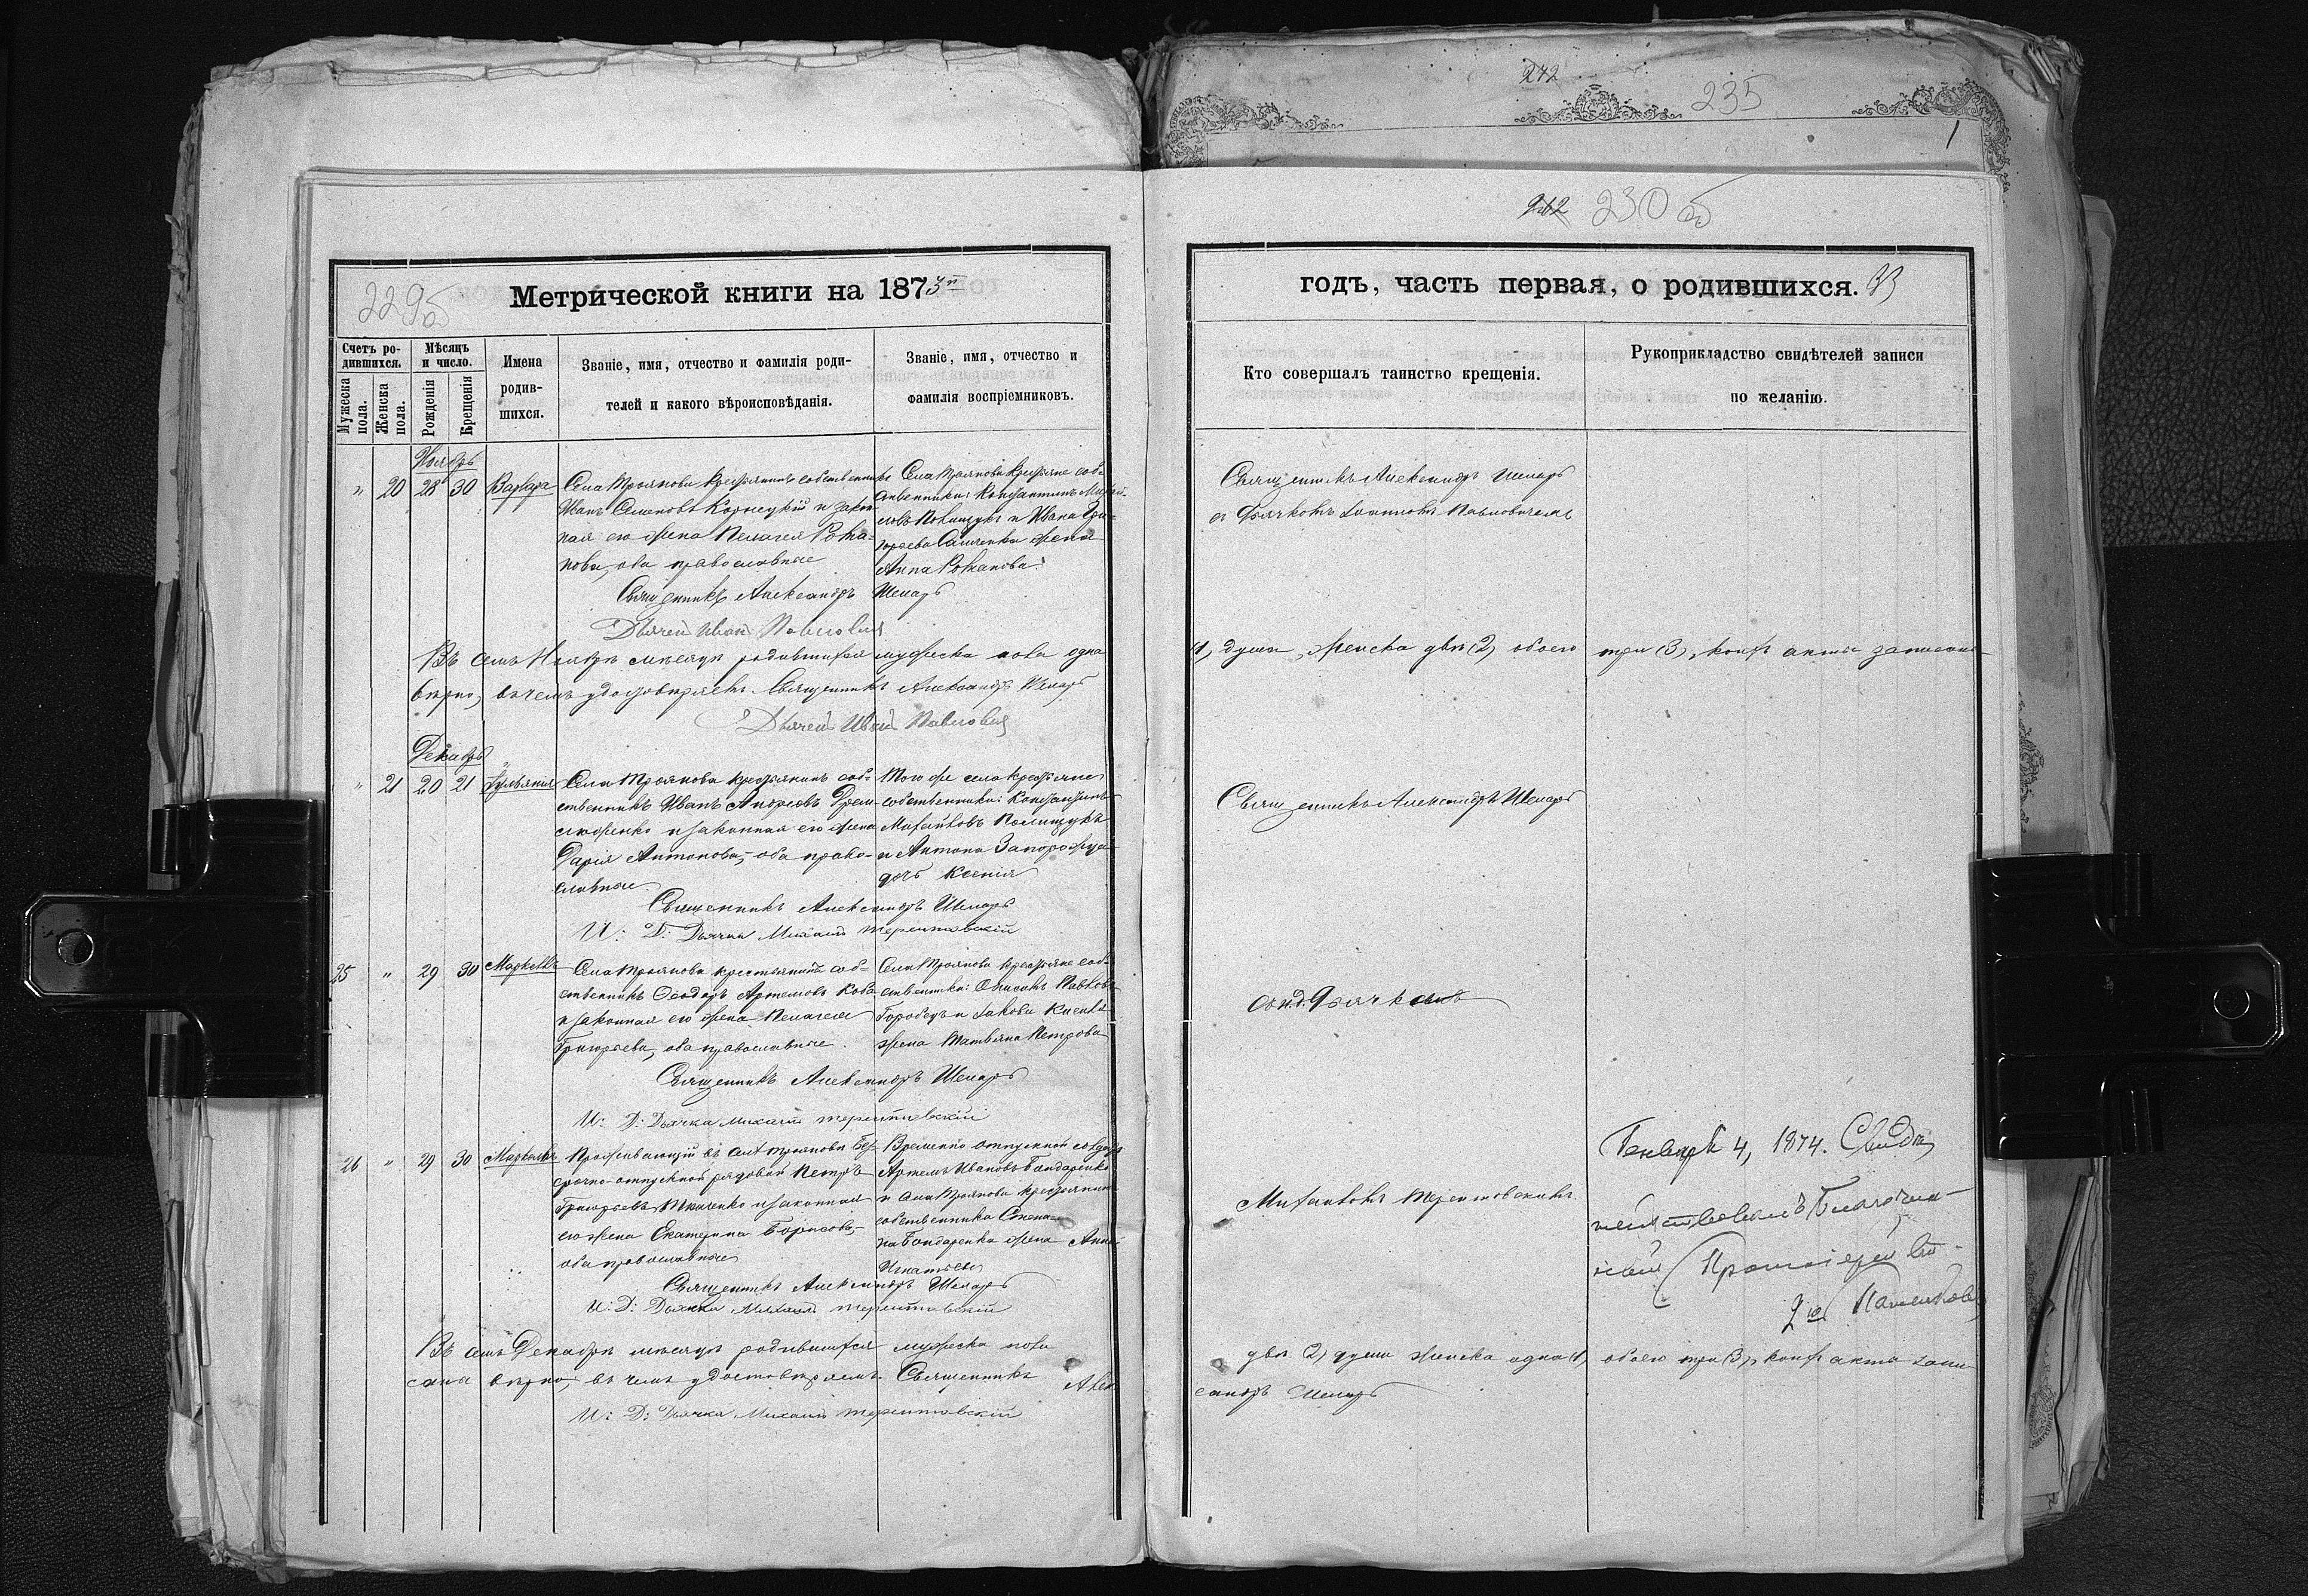 242
235
1
242 230об
229об
Метрической книги на 1873й
годъ, часть первая, о родившихся.
Счетъ ро-
дившихся.
Мужеска пола.
Женска пола.
Мѣсяцъ
и число.
Рожденія
Крещенія
Имена
родив-
шихся.
Званіе, имя, отчество и фамилія роди-
телей и какого вѣроисповѣданія.
Званіе, имя, отчество и
фамилія воспріемниковъ.
Кто совершалъ таинство крещенія.
Рукоприкладство свидѣтелей записи
по желанію.
Ноябрь
" 20 28 30 Варвара
Села Троянова крестьянинъ собственникъ
Иванъ Семеновъ Корнецкій и закон-
ная его жена Пелагея Рома-
нова, оба православные
Села Троянова крестьяне соб-
ственники: Константинъ Михай-
ловъ Полищукъ и Ивана Гри-
горьева жена
Анна Романова.
Священникъ Александръ Шемаръ
съ Дьячкомъ Іоанномъ Павловичемъ
Священникъ Александръ Шемаръ
Дьячекъ Иванъ Павловичъ
Въ семъ Ноябрѣ мѣсяцѣ родившихся мужеска пола одна
(1) душа, женска двѣ (2) обоего три (3), коихъ акты записаны
вѣрно, въ чемъ удостовѣряемъ. Священникъ Александръ Шемаръ
Дьячекъ Иванъ Павловичъ
Декабрь
" 21 20 21 Іуліанія
Села Троянова крестьянинъ соб-
ственникъ Иванъ Андреевъ
и законная его жена
Дарія Антонова, оба право-
славные
Того же села крестьяне
собственники: Константинъ
Михайловъ Полищукъ
и Антона Запорожца
дочь Ксенія
Священникъ Александръ Шемаръ
Священникъ Александръ Шемаръ
И: Д: Дьячка Михаилъ
25 " 29 30 Маркеллъ
Села Троянова крестьянинъ соб-
ственникъ Ѳеодоръ Артемовъ Коба
и законная его жена Пелагея
Григорьева, оба православные
Села Троянова крестьяне соб-
ственники: Онисимъ Павловъ
Городецъ и Іакова
жена Татьяна Петрова
съ и.д. Дьячкомъ
Священникъ Александръ Шемаръ
И: Д: Дьячка Михаилъ
26 " 29 30 Маркеллъ
Проживающій въ селѣ Трояновѣ Без-
срочно-отпускной рядовой Петръ
Григорьевъ Ткаченко и законная
его жена Екатерина Борисова,
оба православные
Временно отпускной солдатъ
Артемъ Ивановъ Бондаренко
и села Троянова крестьянина
собственника Степа-
на Бондаренка жена Анна
Игнатьева
Михаиломъ
Генваря 4, 1874. Свидѣ-
тельствовалъ Благочин-
ный Протоіерей
Священникъ Александръ Шемаръ
И: Д: Дьячка Михаилъ
Въ семъ Декабрѣ мѣсяцѣ родившихся мужеска пола
двѣ (2) души женска одна (1), обоего три (3), коихъ акты запи-
саны вѣрно, въ чемъ удостовѣряемъ. Священникъ Алек-
сандръ Шемаръ
И: Д: Дьячка Михаилъ